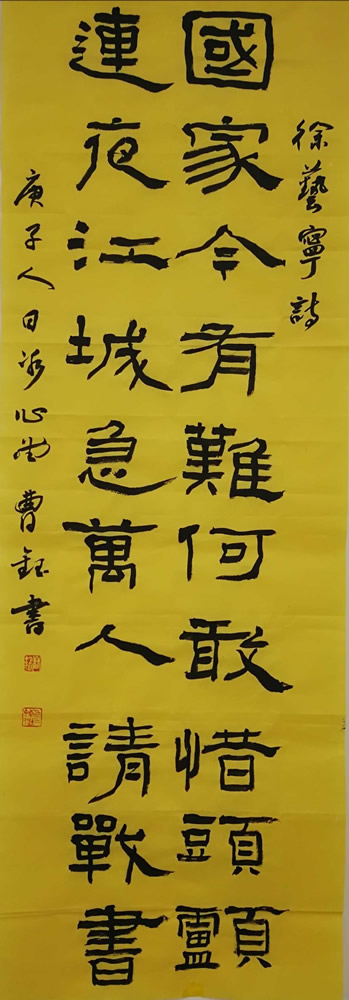 徐藝寧詩
國家今有難何敢惜頭顱
連夜江城急萬人請戰書
庚子人日
心
曹鈺書